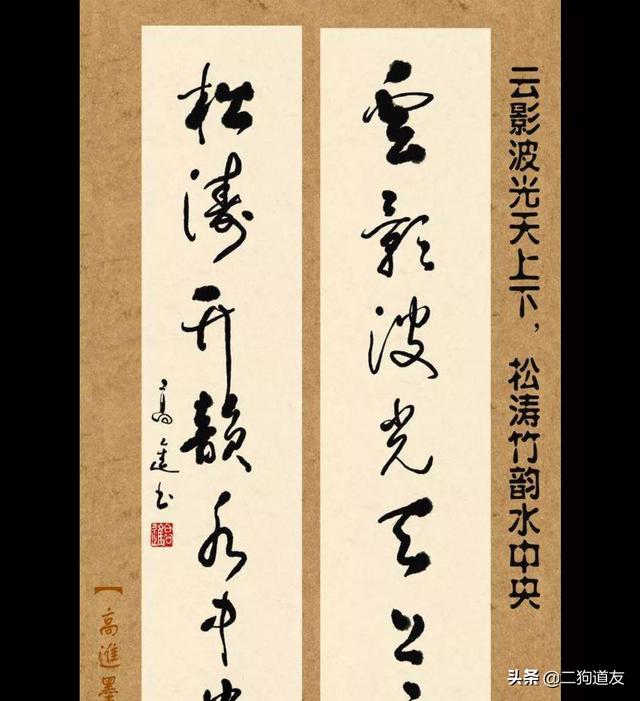 云影波光天上下，松涛竹韵水中央
雲影波光天上
松濤竹韻水中
高進书
【高進墨
头条 @二狗道友